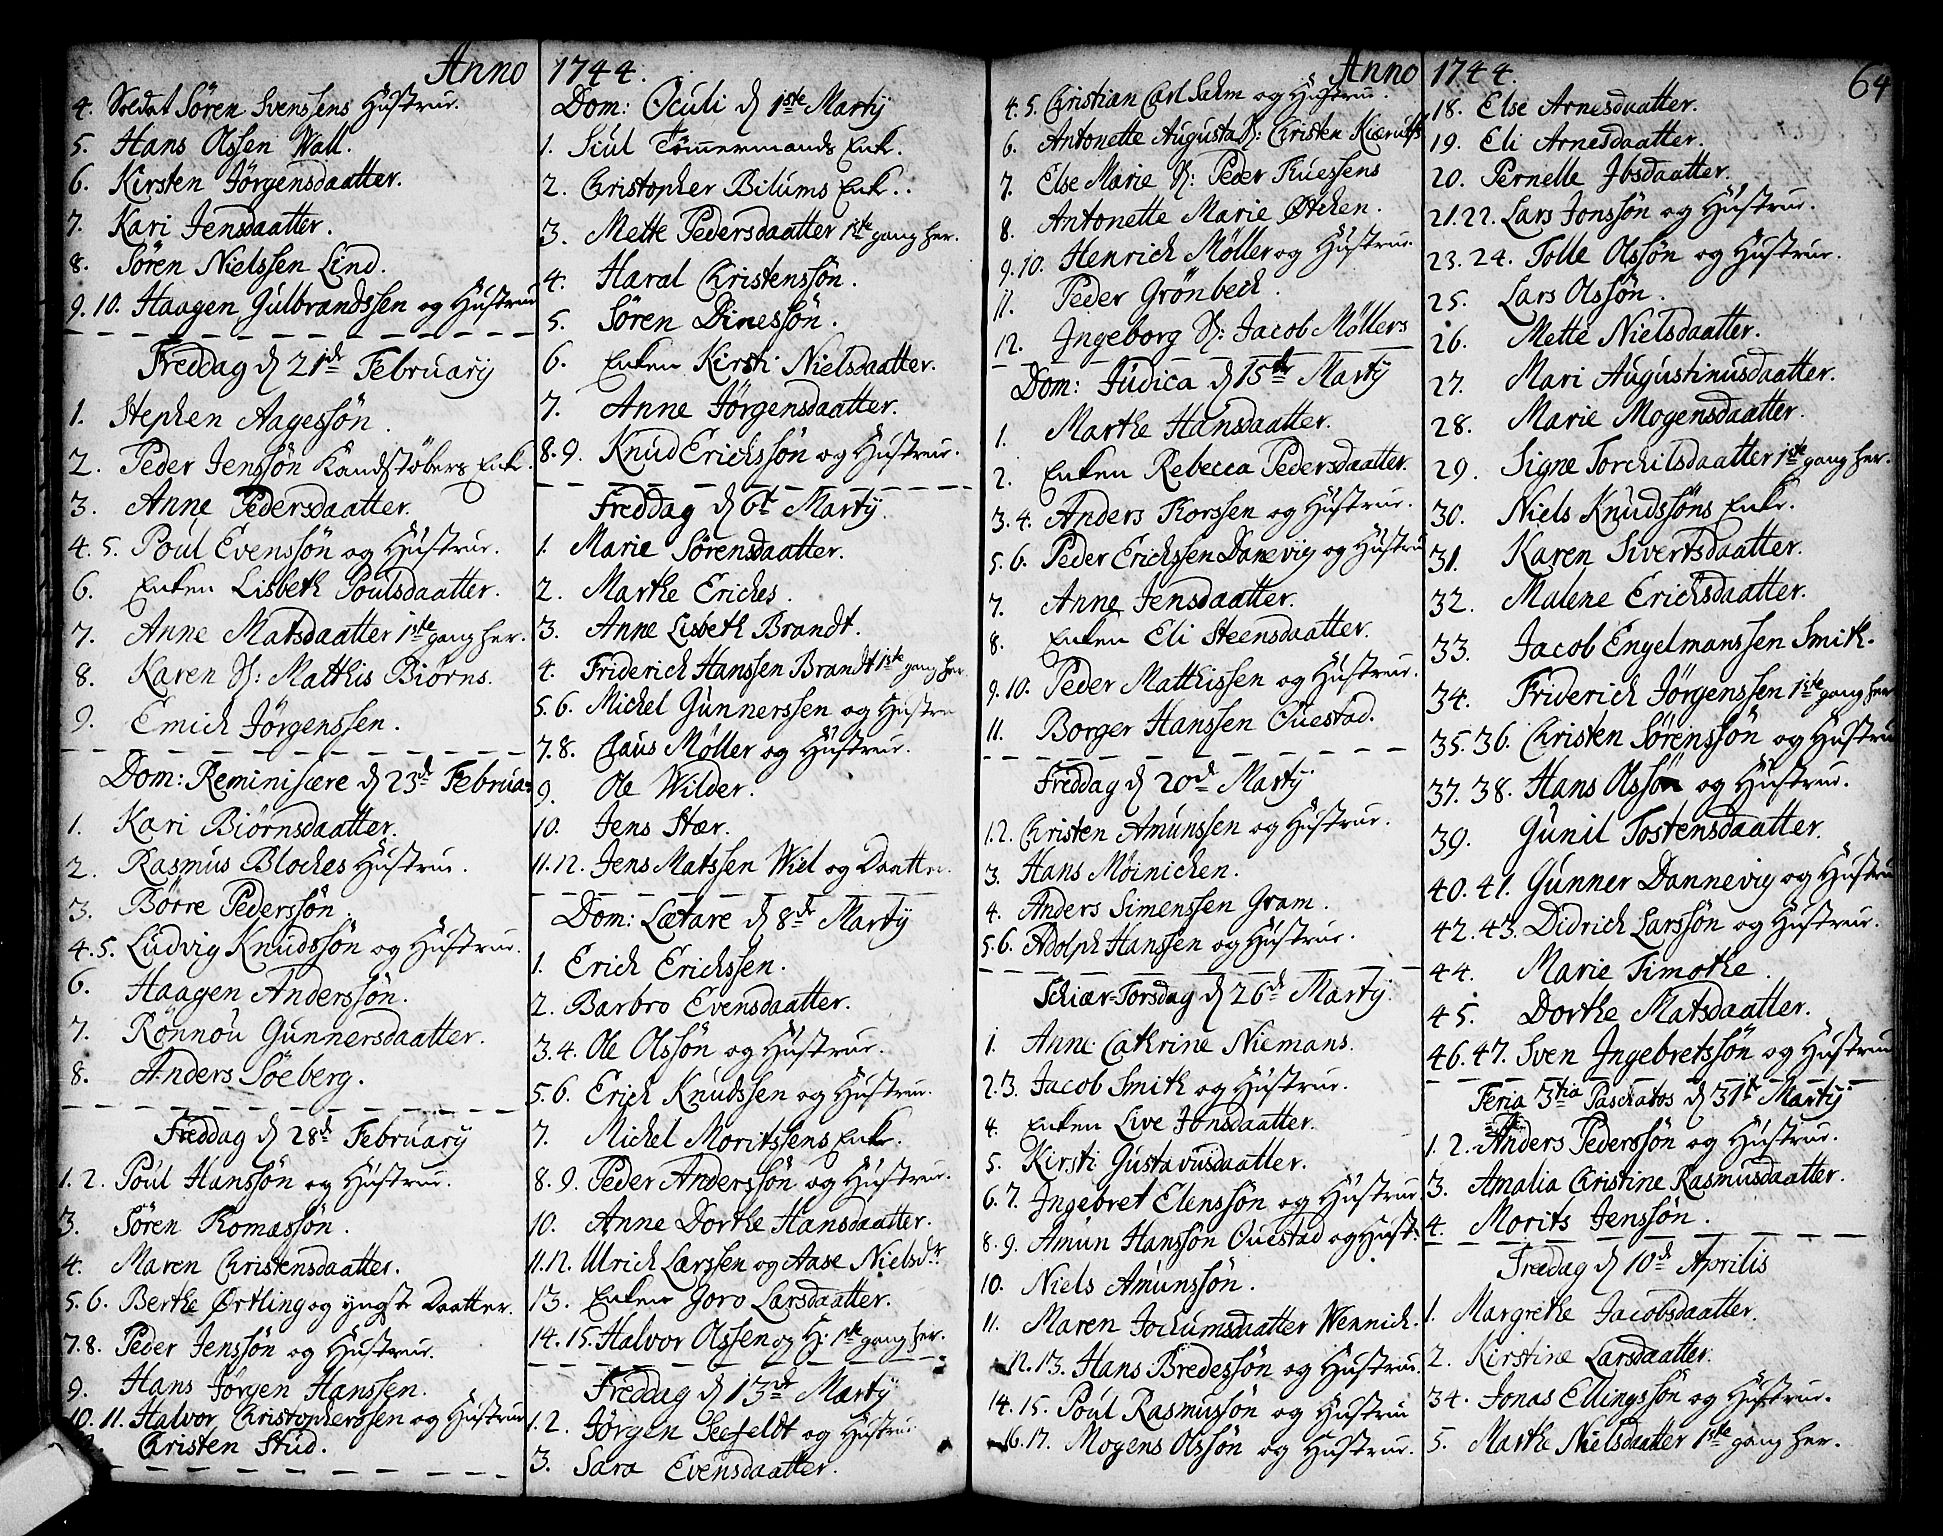 Anno 1744.
4. Soldat Sören Svenssens Hustrue.
5. Hans Olssen Wall.
6. Kirsten Jörgensdaatter.
7. Kari Jensdaatter.
8. Sören Nielssen Lind.
9. 10. Haagen Gulbrandssen og Hustrue
Freddag d 21de February
1. Stephen Aagessön.
2. Peder Jenssön Kandstöbers Enke.
3. Anne Pedersdaatter.
4. 5. Poul Evenssön og Hustrue.
6. Enken Lisbeth Poulsdaatter.
7. Anne Matsdaatter 1ste gang her.
8. Karen S: Mathis Biörns.
9. Emich Jörgenssen.
Dom: Reminisære d 23de Februa:
1. Kari Biörnsdaatter.
2. Rasmus Bloches Hustrue.
3. Börre Pederssön.
4. 5. Ludvig Knudssön og Hustrue.
6. Haagen Anderssön.
7. Rönnou Gunnersdaatter.
8. Anders Söeberg.
Freddag d 28de February
1. 2. Poul Hanssön og Hustrue.
3. Sören Thomassön.
4. Maren Christensdaatter.
5. 6. Berthe Ørtling og yngste Daatter.
7. 8. Peder Jenssön og Hustrue.
9. Hans Jörgen Hanssen.
10. 11. Halvor Christopherssen og Hustrue
Christen Stud.
Dom: Oculi d 1ste Marty
1. Siul Tömmermands Enke.
2. Christopher Bilums Enke.
3. Mette Pedersdaatter 1ste gang her.
4. Haral Christenssön.
5. Sören Dinessön.
6. Enken Kirsti Nielsdaatter.
7. Anne Jörgensdaatter.
8. 9. Knud Erichssön og Hustrue.
Freddag d 6t Marty.
1. Marie Sörensdaatter.
2. Marthe Eriches.
3. Anne Lisbeth Brandt.
4. Friderich Hanssen Brandt 1ste gang her
5. 6. Michel Gunnerssen og Hustrue
7. 8. Claus Møller og Hustrue.
9. Ole Wilder.
10. Jens Stær.
11. 12. Jens Matssen Wiel og Daatter.
Dom: Lætare d 8de Marty
1. Erich Erichssen.
2. Barbro Evensdaatter.
3. 4. Ole Olssön og Hustrue.
5. 6. Erich Knudssen og Hustrue.
7. Michel Moritssens Enke.
8. 9. Peder Anderssön og Hustrue.
10. Anne Dorthe Hansdaatter.
11. 12. Ulrich Larssen og Aase Nielsdr.
13. Enken Goro Larsdaatter.
14. 15. Halvor Olssen og H: 1ste gang her.
Freddag d 13de Marty
1. 2. Jörgen Seefeldt og Hustrue
3. Sara Evensdaatter.
Anno 1744.
64
4. 5. Christian Carl Salm og Hustrue.
6. Antonette Augusta S: Christen Kierulfs
7. Else Marie S: Peder Thuessens
8. Antonette Marie Øtchen.
9. 10. Henrich Møller og Hustrue.
11. Peder Grönbech.
12. Ingeborg S: Jacob Møllers
Dom: Judica d 15de Marty
1. Marthe Hansdaatter.
2. Enken Rebecca Pedersdaatter.
3. 4. Anders Thorssen og Hustrue.
5. 6. Peder Erichssen Danevig og Hustrue
7. Anne Jensdaatter.
8. Enken Eli Steensdaatter.
9. 10. Peder Mathissen og Hustrue.
11. Borger Hanssen Ouestad.
Freddag d 20de Marty
1. 2. Christen Amunssen og Hustrue.
3. Hans Möinichen.
4. Anders Simenssen Gram.
5. 6. Adolph Hanssen og Hustrue.
Schiær-Torsdag d 26de Marty.
1. Anne Cathrine Niemans.
2. 3. Jacob Smith og Hustrue.
4. Enken Live Jonsdaatter.
5. Kirsti Gustavusdaatter.
6. 7. Ingebret Elenssön og Hustrue
8. 9. Amun Hanssön Ouestad og Hust:
10. Niels Amunssön.
11. Maren Jochumsdaatter Wennich.
12. 13. Hans Bredessön og Hustrue
14. 15. Poul Rasmussön og Hustrue
16. 17. Mogens Olssön og Hustrue.
18. Else Arnesdaatter.
19. Eli Arnesdaatter.
20. Pernelle Ibsdaatter.
21. 22. Lars Jonssön og Hustrue.
23. 24. Tolle Olssön og Hustrue.
25. Lars Olssön.
26. Mette Nielsdaatter.
27. Mari Augustinusdaatter.
28. Marie Mogensdaatter.
29. Signe Torchilsdaatter 1ste gang her.
30. Niels Knudssöns Enke.
31. Karen Sivertsdaatter.
32. Malene Erichsdaatter.
33. Jacob Engelmanssen Smith.
34. Friderich Jörgenssen 1ste gang her
35. 36. Christen Sörenssön og Hustrue
37. 38. Hans Olssön og Hustrue.
39. Gunil Tostensdaatter.
40. 41. Gunner Dannevig og Hustrue
42. 43. Didrich Larssön og Hustrue.
44. Marie Timothe.
45. Dorthe Matsdaatter.
46. 47. Sven Ingebretssön og Hustrue
Feria 3tia Paschatos d 31te Marty
1. 2. Anders Pederssön og Hustrue.
3. Amalia Christine Rasmusdaatter.
4. Morits Jenssön.
Freddag d 10de Aprilis
1. Margrethe Jacobsdaatter.
2. Kirstine Larsdaatter.
3 4. Jonas Ellingssön og Hustrue.
5. Marthe Nielsdaatter 1ste gang her.